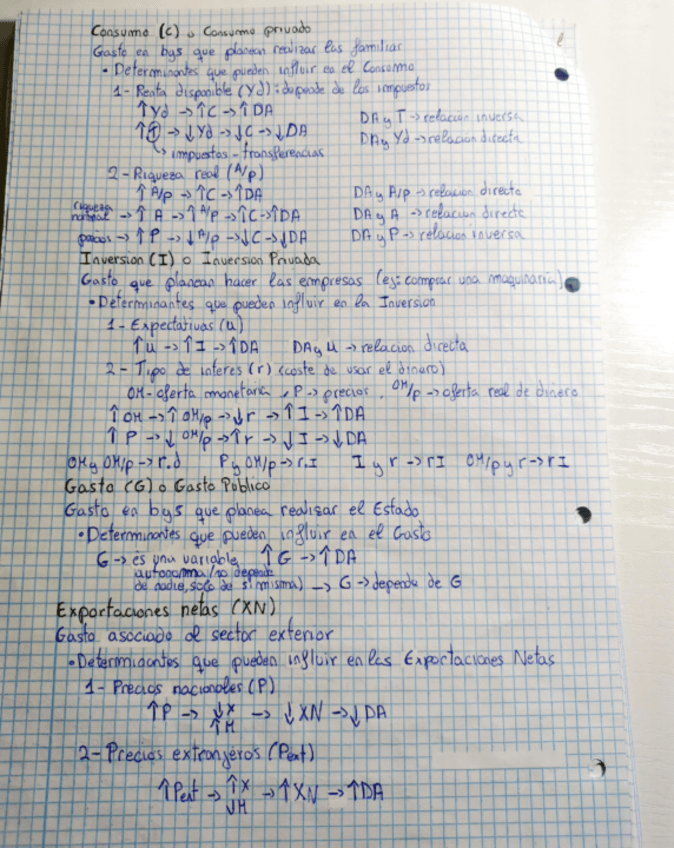 Consumo (C) o Consumo privado
Gasto en bys que planean realizar las familiar
• Determinantes que pueden influir en el Consumo
1- Renta disponible (Yd): depende de los impuestos
↑Yd → ↑C → ↑DA
DA y T → relación inversa
↑T → ↓Yd → ↓C → ↓DA
DA y Yd → relación directa
↳ impuestos - transferencias
2- Riqueza real (A/p)
↑ A/p → ↑C → ↑DA
DA y A/p → relacion directa
riqueza nominal → ↑ A → ↑ A/p → ↑C → ↑DA
DA y A → relacion directa
precios → ↑ P → ↓ A/p → ↓C → ↓DA
DA y P → relacion inversa
Inversion (I) o Inversion Privada
Gasto que planean hacer las empresas (ej: comprar una maquinaria)
• Determinantes que pueden influir en la Inversion
1- Expectativas (u)
↑u → ↑I → ↑DA DA y u → relacion directa
2- Tipo de interes (r) (coste de usar el dinero)
OM- oferta monetaria, P → precios, OM/p → oferta real de dinero
↑ OM → ↑ OM/p → ↓ r → ↑ I → ↑ DA
↑ P → ↓ OM/p → ↑ r → ↓ I → ↓ DA
OM y OM/p → r.d P y OM/p → r.I I y r → rI OM/p y r → rI
Gasto (G) o Gasto Público
Gasto en bys que planea realizar el Estado
• Determinantes que pueden influir en el Gasto
G → es una variable ↑ G → ↑ DA
autonoma (no depende
de nadie, solo de si misma) → G → depende de G
Exportaciones netas (XN)
Gasto asociado al sector exterior
• Determinantes que pueden influir en las Exportaciones Netas
1- Precios nacionales (P)
↑P → ↓X ↑M → ↓ XN → ↓ DA
2- Precios extranjeros (Pext)
↑Pext → ↑X ↓M → ↑XN → ↑DA